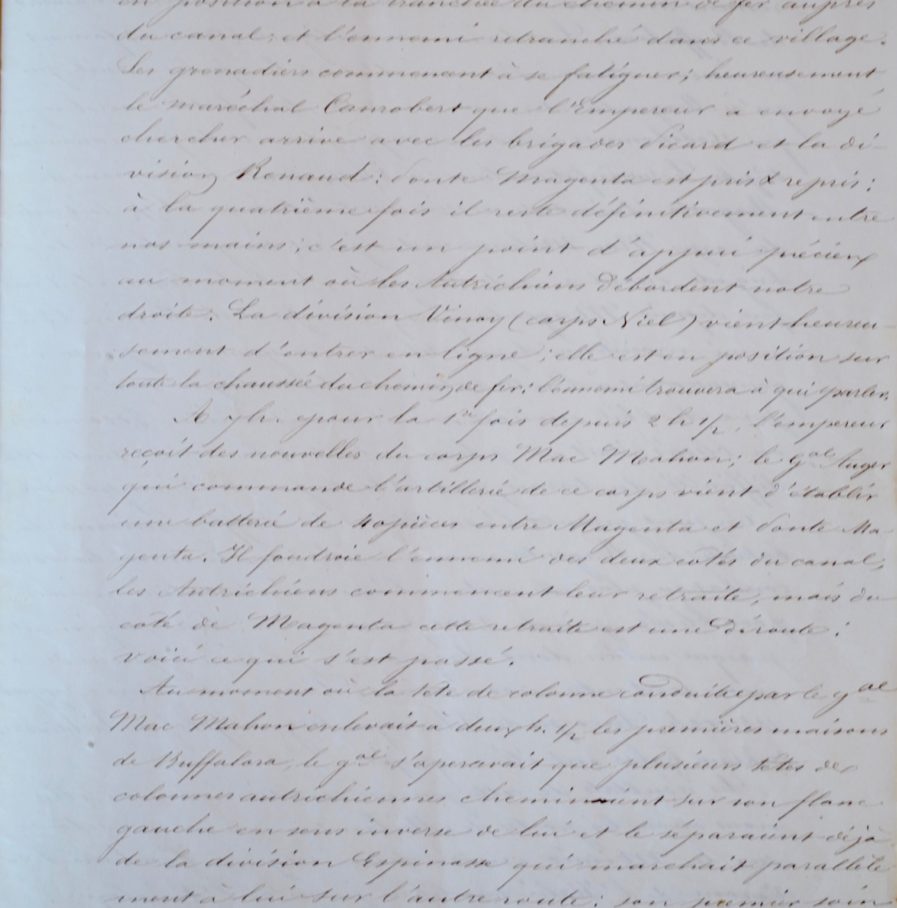 en position à la tranchée du chemin de fer auprès
du canal, et l'ennemi retranché dans ce village.
Les grenadiers commencent à se fatiguer; heureusement
le maréchal Canrobert que l'Empereur a envoyé
chercher arrive avec les brigades Picard et la di-
vision Renaud: Ponte Magenta est pris & repris:
à la quatrième fois il reste définitivement entre
nos mains; c'est un point d'appui précieux
au moment où les Autrichiens débordent notre
droite. La division Vinoy (corps Niel) vient heureu-
sement d'entrer en ligne; elle est en position sur
toute la chaussée du chemin de fer: l'ennemi trouvera à qui parler.
A pour la 1re fois depuis 2 h 1/2, l'empereur
reçoit des nouvelles du corps Mac Mahon; le gal Auger
qui commande l'artillerie de ce corps vient d'établir
une batterie de 40 pièces entre Magenta et Ponte Ma-
genta. Il foudroie l'ennemi des deux cotés du canal,
les Autrichiens commencent leur retraite, mais du
coté de Magenta cette retraite est une déroute:
voici ce qui s'est passé.
Au moment où la tête de colonne conduite par le gal
Mac Mahon enlevait à deux h. 1/2 les premières maisons
de Buffalora, le gal s'apercevait que plusieurs têtes de
colonnes autrichiennes cheminaient sur son flanc
gauche en sens inverse de lui et le séparaient déjà
de la division Espinasse qui marchait parallèle
ment à lui sur l'autre route: son premier soin